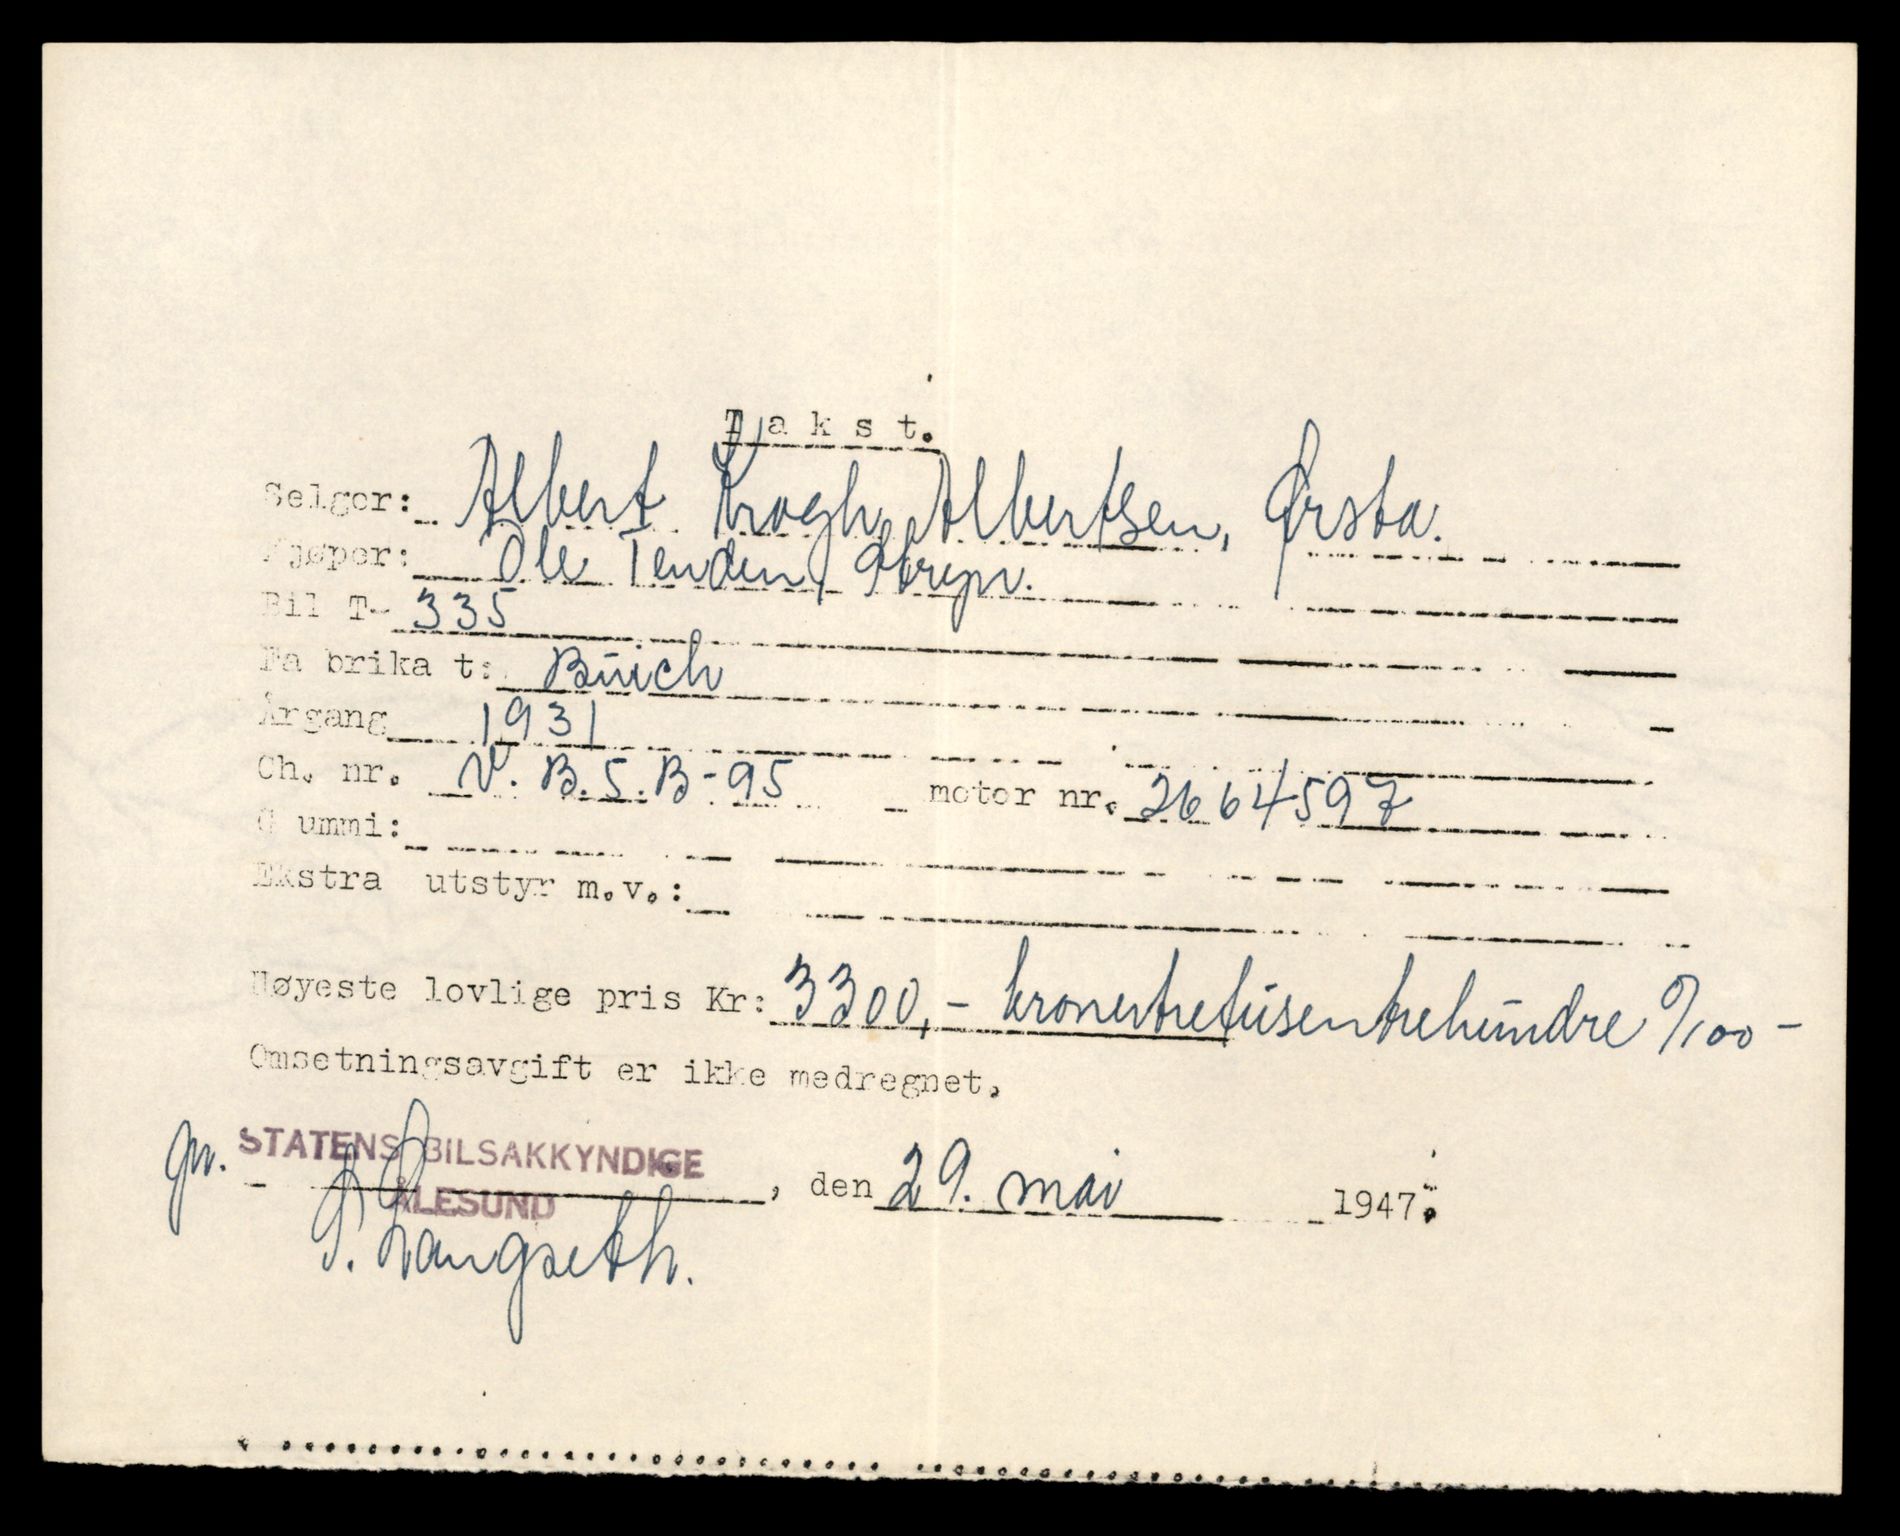 Takst.
Selger: Albert Krogh Albertsen, Ørsta.
Kjøper: Ole Tenden, Stryn.
Bil T- 335
Fabrikat: Buick
Årgang 1931
Ch. nr. V.B.S.B-95 motor nr. 2664597
Gummi:
Ekstra utstyr m.v.:
Høyeste lovlige pris Kr: 3300,- kronertretusentrehundre 0/100-
Omsetningsavgift er ikke medregnet.
STATENS BILSAKKYNDIGE
ÅLESUND
, den 29. mai 1947.
P. Langseth.